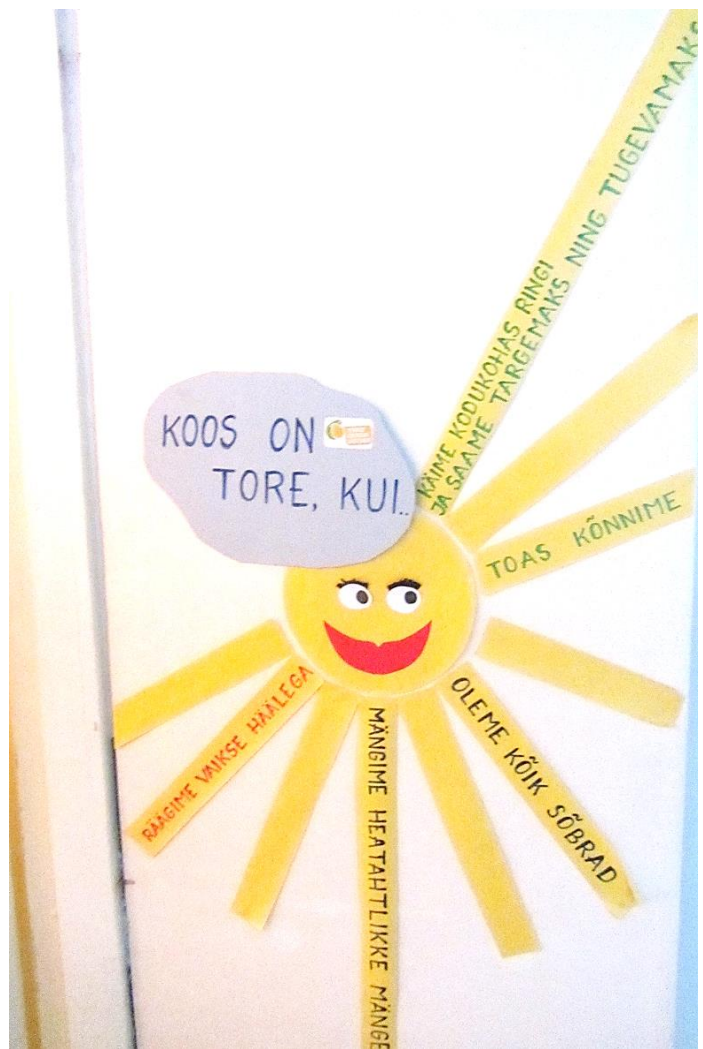 KOOS ON
TORE, KUI..
KÄIME KODUKOHAS RINGI
JA SAAME TARGEMAKS NING TUGEVAMAKS
TOAS KÕNNIME
OLEME KÕIK SÕBRAD
MÄNGIME HEATAHTLIKKE MÄNGE
RÄÄGIME VAIKSE HÄÄLEGA